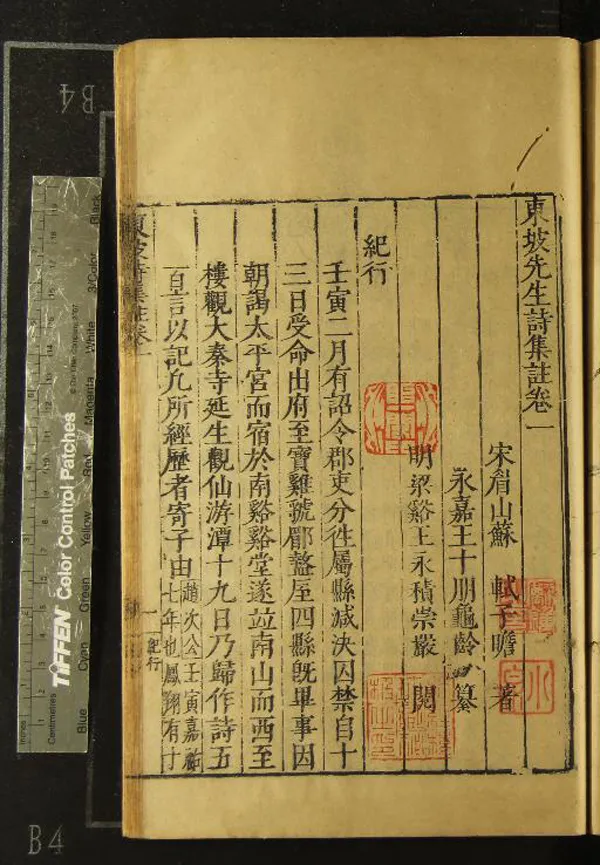 東坡先生詩集註卷一
宋眉山蘇 軾子瞻 著
永嘉王十朋龜齡 纂
明梁谿王永積崇巖 閱
紀行
壬寅二月有詔令郡吏分徃屬縣减决囚禁自十
三日受命出府至寶雞虢郿盩厔四縣旣畢事因
朝謁太平宮而宿於南谿谿堂遂竝南山而西至
樓觀大秦寺延生觀仙游潭十九日乃歸作詩五
百言以記凢所經歷者寄子由
趙次公壬寅嘉祐
七年也鳳翔有十
東坡詩集註卷一
紀行
一
B4
B4
TIFFEN Color Control Patches
© The Tiffen Company, 2007
Centimetres
Inches
Blue
Cyan
Green
Yellow
Red
Magenta
White
3/Color
Black